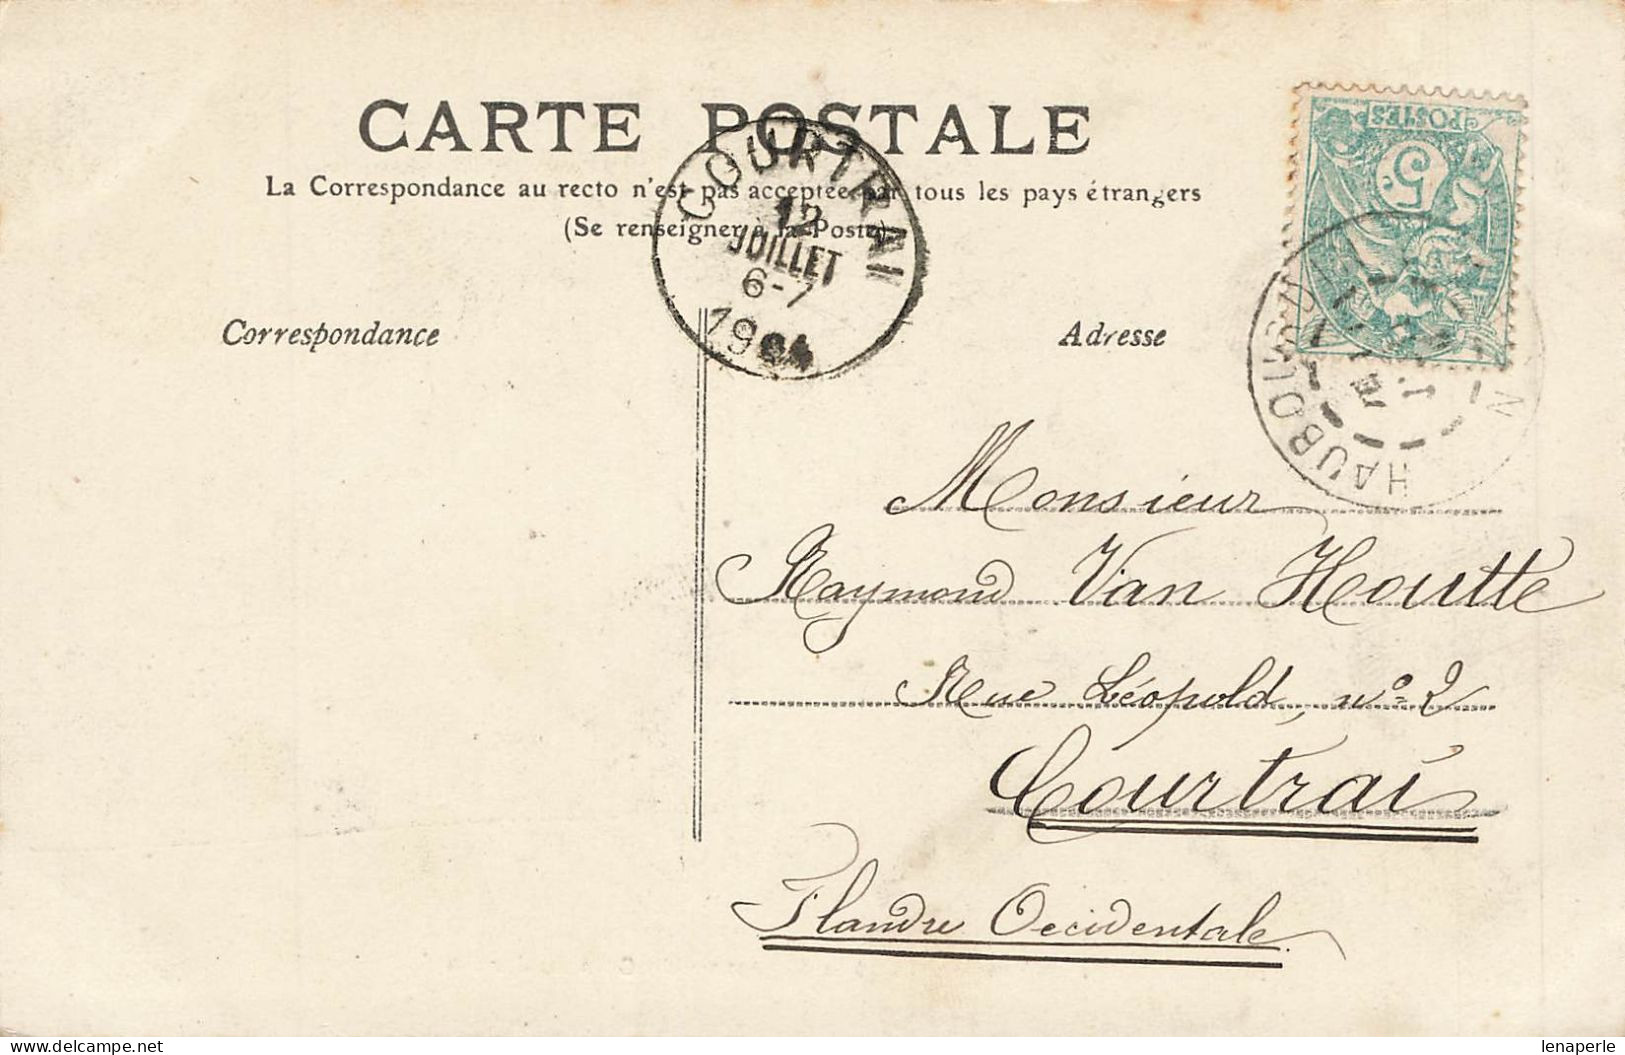 CARTE POSTALE
La Correspondance au recto n'est pas acceptée par tous les pays étrangers
(Se renseigner à la Poste)
COURTRAI
12
JUILLET
6-7
1904
POSTES
5
HAUBOURDIN
Correspondance
Adresse
Monsieur
Raymond Van Houtte
Rue Léopold, nº 2
Courtrai
Flandre Occidentale.
delcampe.net
lenaperle